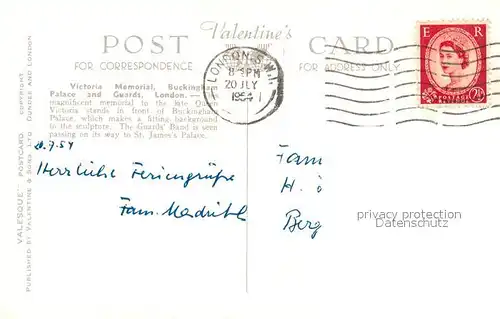 Valentine's
POST CARD
FOR CORRESPONDENCE
FOR ADDRESS ONLY
LONDON S.W.1.
8 - PM
20 JLY
1954
E R
POSTAGE REVENUE
2½D
Victoria Memorial, Buckingham
Palace and Guards, London.—
magnificent memorial to the late Queen
Victoria stands in front of Buckingham
Palace, which makes a fitting background
to the sculpture. The Guards' Band is seen
passing on its way to St. James's Palace.
"VALESQUE" POSTCARD. COPYRIGHT.
PUBLISHED BY VALENTINE & SONS LTD. DUNDEE AND LONDON
20.7.54
Herrliche Feriengrüße
Fam.
Fam
H.
Berg
privacy protection
Datenschutz